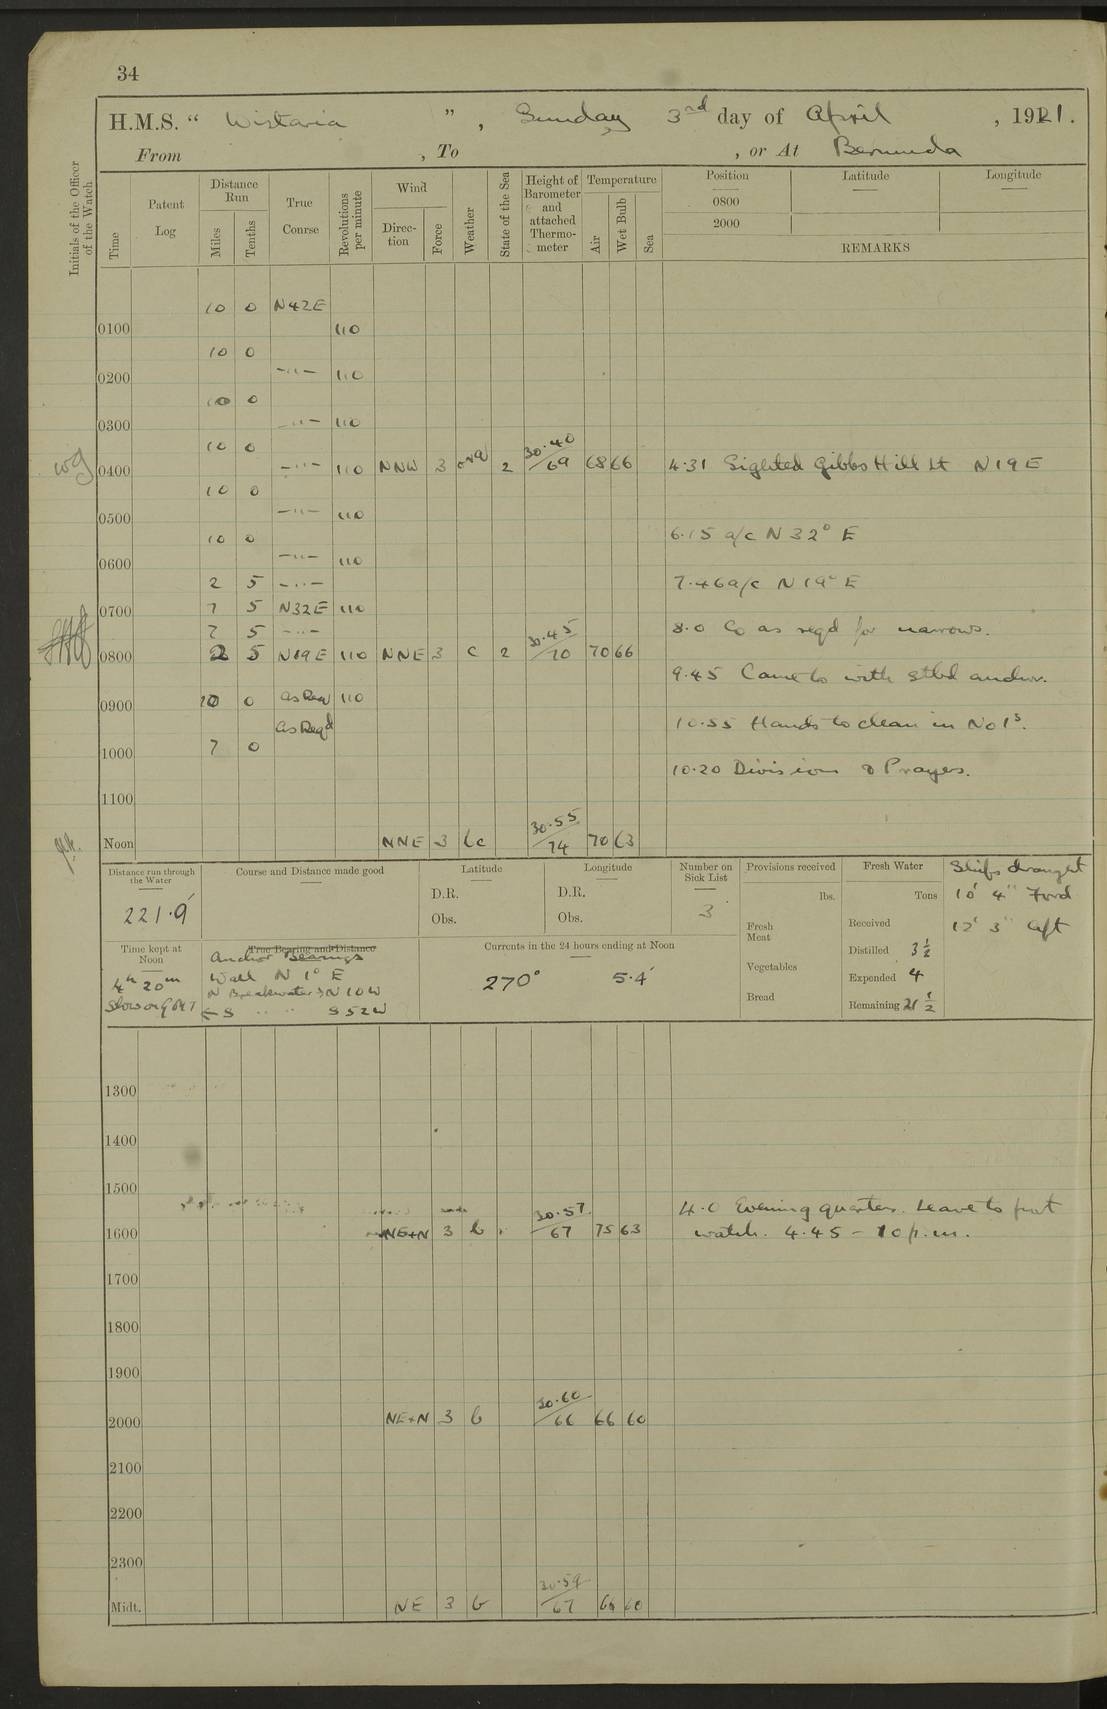 34
H.M.S. “ Wistaria ” , Sunday 3rd day of April , 1921.
From , To , or At Bermuda
Initials of the Officer of the Watch
Time
Patent Log
Distance Run
Miles
Tenths
True Course
Revolutions per minute
Wind
Direction
Force
Weather
State of the Sea
Height of Barometer and attached Thermometer
Temperature
Air
Wet Bulb
Sea
Position Latitude Longitude
0800
2000
REMARKS
10 0 N42E
0100 110
10 0
0200 -"- 110
10 0
0300 -"- 110
10 0
0400 -"- 110 NNW 3 2 30.40/69 68 66 4.31 Sighted Gibbs Hill Lt N19E
10 0
0500 -"- 110
10 0 6.15 a/c N 32° E
0600 -"- 110
2 5 -"- 7.46 a/c N 19° E
0700 7 5 N32E 110
7 5 -"- 8.0 Co as reqd for narrows.
0800 2 5 N19E 110 NNE 3 c 2 30.45/70 70 66
9.45 Came to with stbd anchor.
0900 10 0 as Req 110
as Reqd 10.55 Hands to clean in No 1s.
1000 7 0
10.20 Division & Prayers.
1100
Noon NNE 3 bc 30.55/74 70 63
Distance run through the Water
221.9'
Course and Distance made good
Latitude
D.R.
Obs.
Longitude
D.R.
Obs.
Number on Sick List
3
Provisions received
lbs.
Fresh Meat
Vegetables
Bread
Fresh Water
Tons
Received
Distilled 3 1/2
Expended 4
Remaining 21 1/2
Ships draught
10' 4" Ford
12' 3" aft
Time kept at Noon
4h 20m
Slow on GMT
True Bearing and Distance
Anchor Bearings
Wall N 1° E
N Breakwater N10W
S " " S52W
Currents in the 24 hours ending at Noon
270° 5.4'
1300
1400
1500
4.0 Evening quarters. Leave to first
1600 NE+N 3 b 30.57/67 75 63 watch. 4.45 - 10 p.m.
1700
1800
1900
2000 NE+N 3 b 30.60/66 66 60
2100
2200
2300
Midt. NE 3 b 30.59/67 60